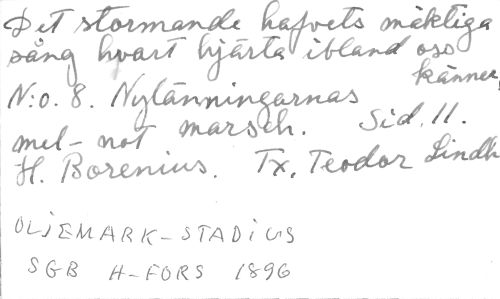 Det stormande hafvets mäktiga
sång hvart hjärta ibland oss
känner,
N:o. 8. Nylänningarnas
mel-not marsch. Sid. 11.
H. Borenius. Tx. Teodor Lindh
OLJEMARK-STADIUS
SGB H-FORS 1896